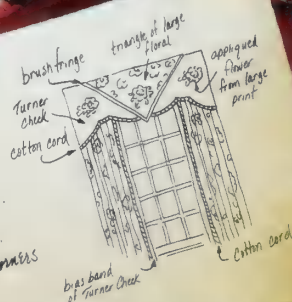 brushfringe
triangle of large
floral
appliqued
flower
from large
print
Turner
check
cotton cord
bias band
of Turner Check
Cotton cord